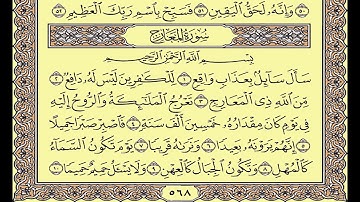 ٥٠ وَإِنَّهُۥ لَحَقُّ ٱلْيَقِينِ ٥١ فَسَبِّحْ بِٱسْمِ رَبِّكَ ٱلْعَظِيمِ ٥٢
سُورَةُ المَعَارِجِ
بِسْمِ ٱللَّهِ ٱلرَّحْمَٰنِ ٱلرَّحِيمِ
سَأَلَ سَآئِلٌۢ بِعَذَابٍ وَاقِعٍ ١ لِّلْكَٰفِرِينَ لَيْسَ لَهُۥ دَافِعٌ ٢
مِّنَ ٱللَّهِ ذِى ٱلْمَعَارِجِ ٣ تَعْرُجُ ٱلْمَلَٰٓئِكَةُ وَٱلرُّوحُ إِلَيْهِ
فِى يَوْمٍ كَانَ مِقْدَارُهُۥ خَمْسِينَ أَلْفَ سَنَةٍ ٤ فَٱصْبِرْ صَبْرًا جَمِيلًا
٥ إِنَّهُمْ يَرَوْنَهُۥ بَعِيدًا ٦ وَنَرَىٰهُ قَرِيبًا ٧ يَوْمَ تَكُونُ ٱلسَّمَآءُ
كَٱلْمُهْلِ ٨ وَتَكُونُ ٱلْجِبَالُ كَٱلْعِهْنِ ٩ وَلَا يَسْـَٔلُ حَمِيمٌ حَمِيمًا ١٠
٥٦٨